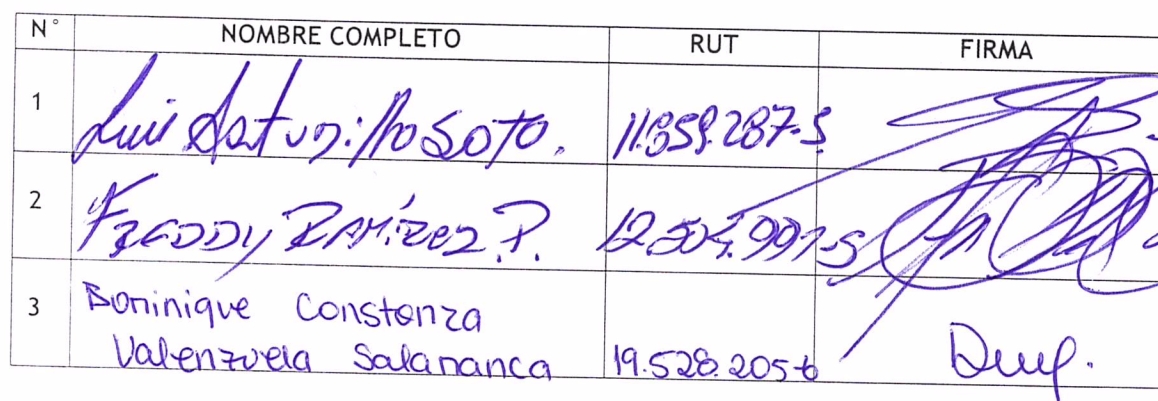 N° NOMBRE COMPLETO RUT FIRMA
1 Luis Astudillo Soto. 11.859.287-5
2 FREDDY RAMÍREZ P.
3 Dominique Constanza
Valenzuela Salamanca 19.528.205-6